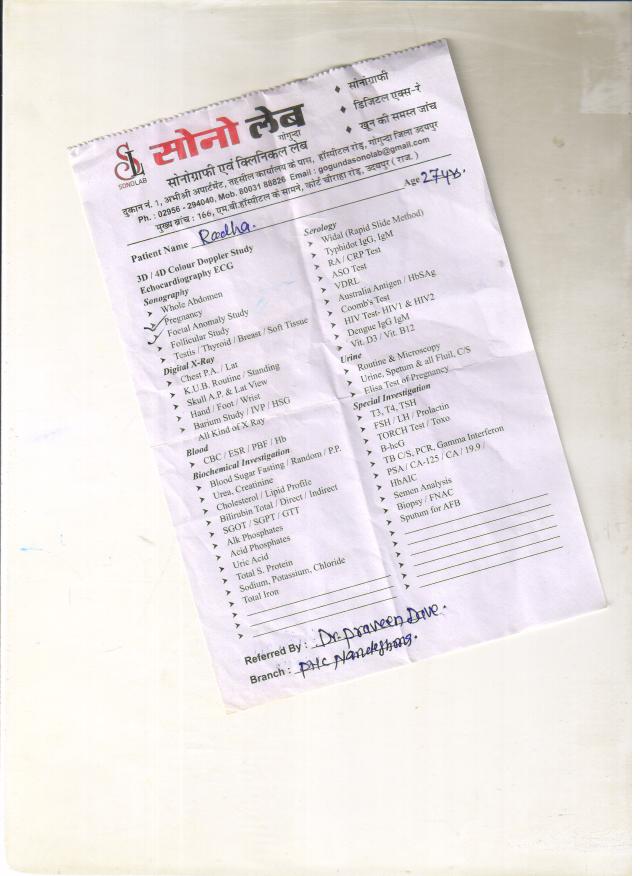 SL
SONOLAB
सोनो लेब
गोगुन्दा
सोनोग्राफी एवं क्लिनिकल लेब
♦ सोनोग्राफी
♦ डिजिटल एक्स-रे
♦ खून की समस्त जांच
दुकान नं. 1, अभीश्री अपार्टमेंट, तहसील कार्यालय के पास, हॉस्पीटल रोड़, गोगुंदा जिला उदयपुर
Ph. : 02956 - 294040, Mob. 80031 88826 Email : gogundasonolab@gmail.com
मुख्य ब्रांच : 166, एम.बी.हॉस्पीटल के सामने, कोर्ट चौराहा रोड़, उदयपुर ( राज. )
Patient Name Radha. Age 27 yrs.
3D / 4D Colour Doppler Study
Echocardiography ECG
Sonography
Whole Abdomen
Pregnancy
Foetal Anomaly Study
Follicular Study
Testis / Thyroid / Breast / Soft Tissue
Digital X-Ray
Chest P.A. / Lat
K.U.B. Routine / Standing
Skull A.P. & Lat View
Hand / Foot / Wrist
Barium Study / IVP / HSG
All Kind of X Ray
Blood
CBC / ESR / PBF / Hb
Biochemical Investigation
Blood Sugar Fasting / Random / P.P.
Urea, Creatinine
Cholesterol / Lipid Profile
Bilirubin Total / Direct / Indirect
SGOT / SGPT / GTT
Alk Phosphates
Acid Phosphates
Uric Acid
Total S. Protein
Sodium, Potassium, Chloride
Total Iron
Serology
Widal (Rapid Slide Method)
Typhidot IgG, IgM
RA / CRP Test
ASO Test
VDRL
Australia Antigen / HbSAg
Coomb's Test
HIV Test- HIV1 & HIV2
Dengue IgG IgM
Vit. D3 / Vit. B12
Urine
Routine & Microscopy
Urine, Spetum & all Fluil, C/S
Elisa Test of Pregnancy
Special Investigation
T3, T4, TSH
FSH / LH / Prolactin
TORCH Test / Toxo
B-hcG
TB C/S, PCR, Gamma Interferon
PSA / CA-125 / CA / 19.9 /
HbAIC
Semen Analysis
Biopsy / FNAC
Sputum for AFB
Referred By : Dr. Praveen Dave.
Branch : PHC